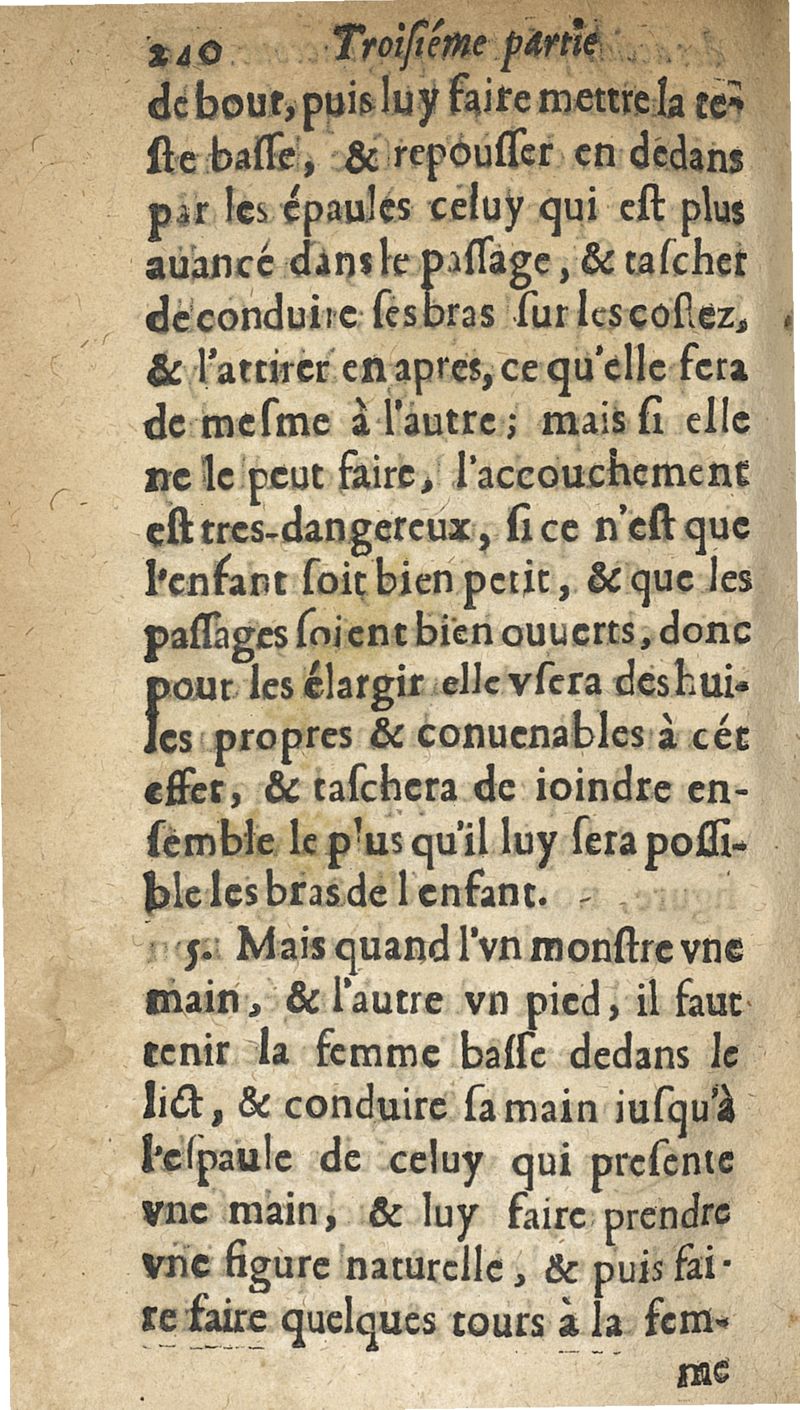 240 Troisiéme partie
debout, puis luy faire mettre la te-
ſte baſſe, & repouſſer en dedans
par les épaules celuy qui eſt plus
auancé dans le paſſage, & taſcher
de conduire ſes bras ſur les coſtez,
& l'attirer en apres, ce qu'elle fera
de meſme à l'autre; mais ſi elle
ne le peut faire, l'accouchement
eſt tres-dangereux, ſi ce n'eſt que
l'enfant ſoit bien petit, & que les
paſſages ſoient bien ouuerts, donc
pour les élargir elle vſera des hui-
les propres & conuenables à cét
effet, & taſchera de ioindre en-
ſemble le plus qu'il luy ſera poſſi-
ble les bras de l enfant.
5. Mais quand l'vn monſtre vne
main, & l'autre vn pied, il faut
tenir la femme baſſe dedans le
lict, & conduire ſa main iuſqu'à
l'eſpaule de celuy qui preſente
vne main, & luy faire prendre
vne figure naturelle, & puis fai-
re faire quelques tours à la fem-
me